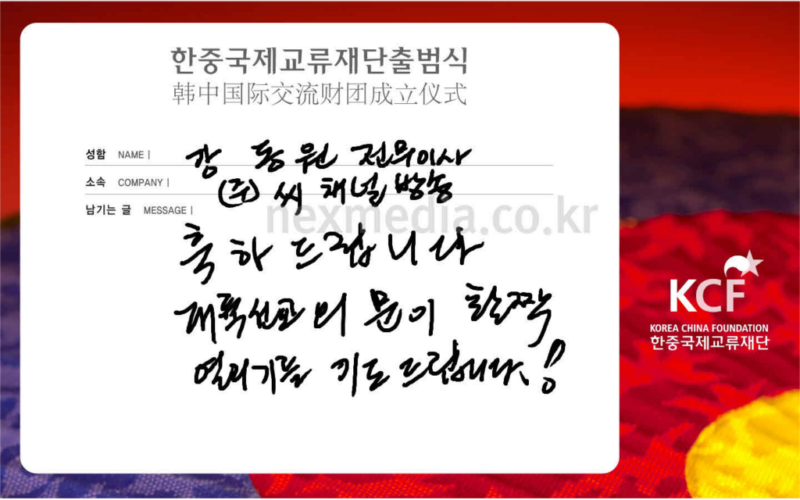 한중국제교류재단출범식
韩中国际交流财团成立仪式
성함 NAME | 강 동원 전무이사
소속 COMPANY | (주) 씨채널방송
남기는 글 MESSAGE |
nexmedia.co.kr
축하드립니다
대륙선교의 문이 활짝
열리기를 기도드립니다.!
KCF
KOREA CHINA FOUNDATION
한중국제교류재단